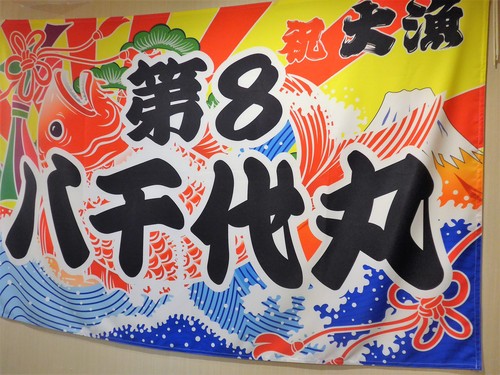 祝 大漁
第8
八千代丸